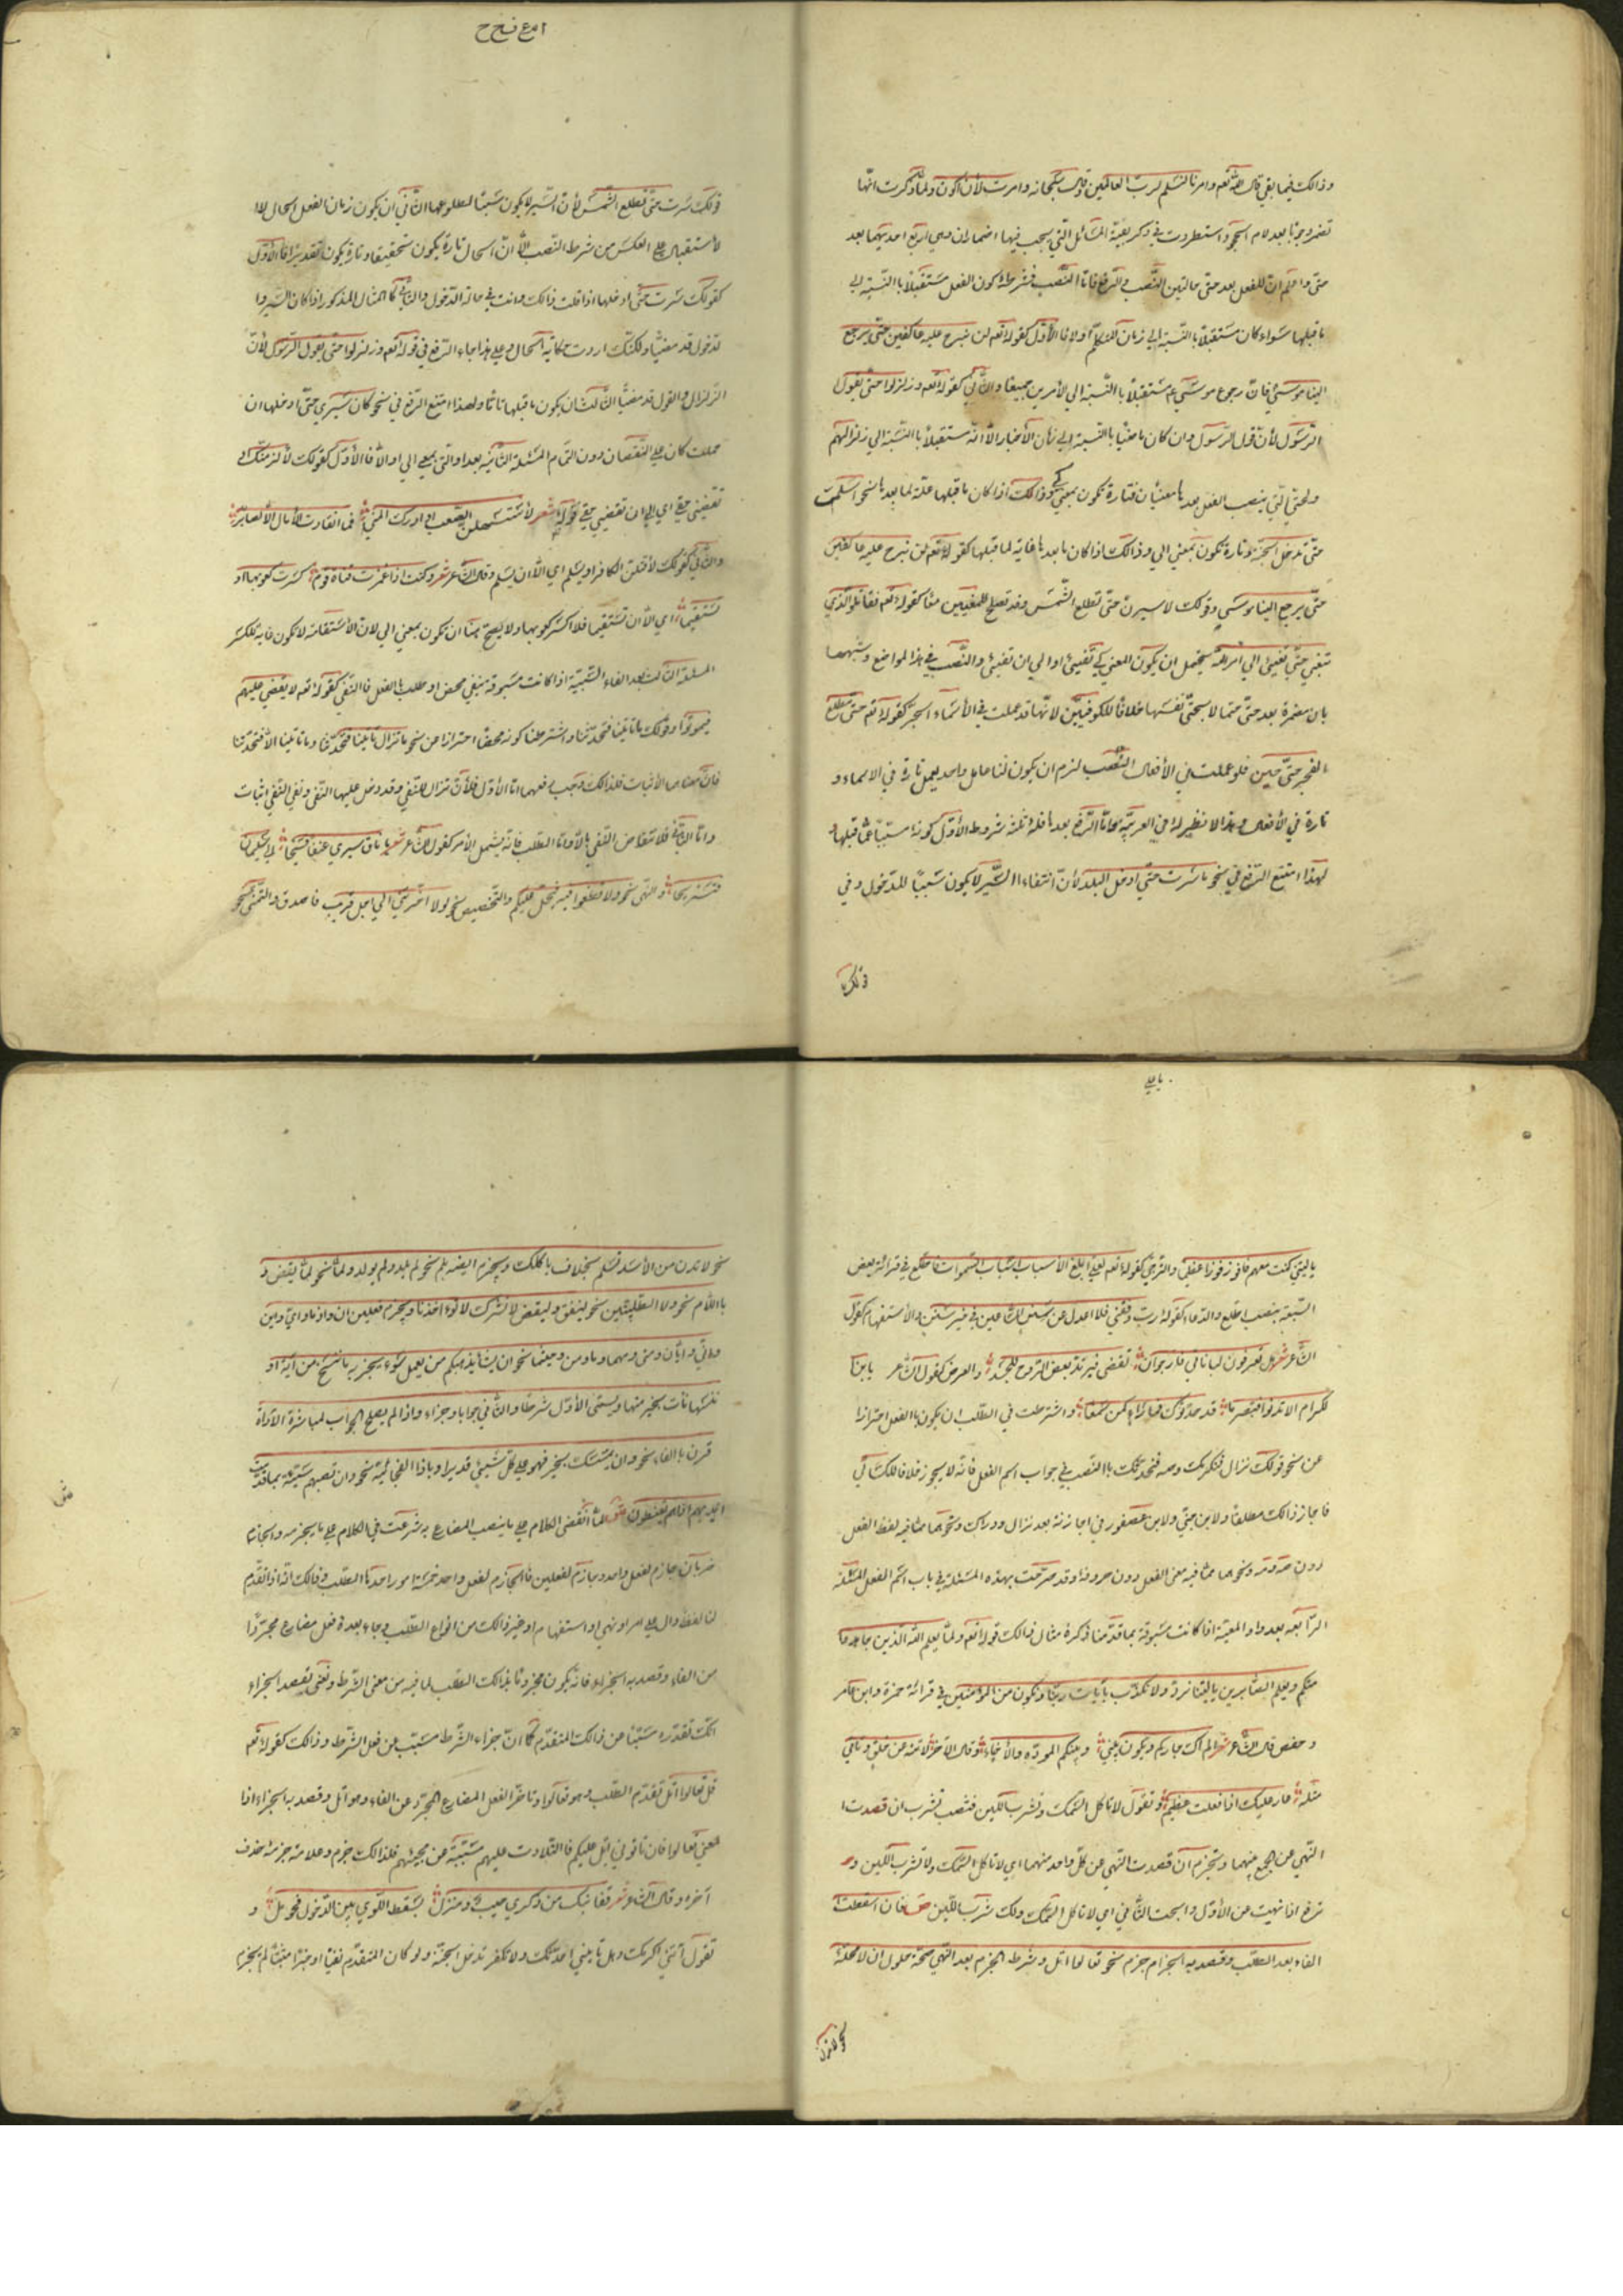 وذالك فيما بقي قال الله تعه وامرنا لنسلم لرب العالمين وقال سبحانه وامرت لأن اكون ولما ذكرت انها
تضمر وجوبا بعد لام الجحود استطردت في ذكر بقية المسائل التي يجب فيها اضمار ان وهي اربع احديهما بعد
حتى واعلم ان للفعل بعد حتى حالتين النصب والرفع فاما النصب فشرطه كون الفعل مستقبلا باالنسبة الى
ما قبلها سواء كان مستقبلا باالنسبة الى زمان المتكلم اولا فا الأول كقوله تعه لن نبرح عليه عاكفين حتى يرجع
الينا موسى فان رجوع موسى ع مستقبلا باالنسبة الى الأمرين جميعا والثاني كقوله تعه وزلزلوا حتى يقول
الرسول لأن قول الرسول وان كان ماضيا باالنسبة الى زمان الأخبار الا انه مستقبلا باالنسبة الى زلزالهم
ولحتى التي ينصب الفعل بعدها معنيان فتارة تكون بمعنى كي وذالك اذا كان ما قبلها علة لما بعدها نحو اسلمت
حتى تدخل الجنة وتارة تكون بمعنى الى وذالك اذا كان ما بعدها غاية لما قبلها كقوله تعه لن نبرح عليه عاكفين
حتى يرجع الينا موسى وقولك لاسيرن حتى تطلع الشمس وقد تصلح للمعنيين معا كقوله تعه فقاتلو الذي
تبغي حتى تفيئ الى امر الله يحتمل ان يكون المعنى كي تفيئ او الى ان تفيئ والنصب في هذا المواضع وشبهها
بان مضمرة بعد حتى حتما لا بحتى نفسها خلافا للكوفيين لانها قد عملت في الأسماء الجر كقوله تعه حتى مطلع
الفجر حتى حين فلو عملت في الأفعال النصب لزم ان يكون لنا عامل واحد يعمل تارة في الاسماء و
تارة في الأفعال وهذا لا نظير له في العربية واما الرفع بعدها فله ثلثة شروط الأول كونه مسببا عما قبلها و
لهذا امتنع الرفع في نحو ما سرت حتى ادخل البلد لأن انتفاء االسير لا يكون سببا للدخول وفي
قولك سرت حتى تطلع الشمس لأن السير لا يكون سببا لطلوعها الثاني ان يكون زمان الفعل الحال لا ا
لأستقبال على العكس من شرط النصب الا ان الحال تارة يكون تحقيقا وتارة يكون تقديرا فا الأول
كقولك سرت حتى ادخلها اذا قلت ذالك وانت في حالة الدخول والثاني كا المثال المذكور اذا كان السير وا
لدخول قد مضيا ولكنك اردت حكاية الحال وعلى هذا جاء الرفع في قوله تعه وزلزلوا حتى يقول الرسول لأن
الزلزال والقول قد مضيا الثالث ان يكون ما قبلها تاما ولهذا امتنع الرفع في نحو كان سيري حتى ادخلها ان
حملت كان على النقصان دون التمام المسئلة الثانية بعد او التي بمعنى الى او الا فا الأول كقولك لألزمنك او
تقضيني حقي اي الى ان تقضيني حقي وقوله شعر لأستسهلن الصعب او ادرك المنى فما انقادت الأمال الا لصابر
والثاني كقولك لأقتلن الكافر او يسلم اي الا ان يسلم وقال الشاعر شعر وكنت اذا غمزت قناة قوم كسرت كعوبها او
تستقيما اي الا ان تستقيما فلا اكسر كعوبها ولا يصح هنا ان تكون بمعنى الى لان الأستقامة لا تكون غاية للكسر
المسئلة الثالثة بعد الفاء السببية اذا كانت مسبوقة بنفي محض او طلب باالفعل فا النفي كقوله تعه لا يقضى عليهم
فيموتوا وقولك ما تأتينا فتحدثنا واشترطنا كونه محضا احترازا من نحو ما تزال تأتينا فتحدثنا وما تأتينا الا فتحدثنا
فان معناهما الأثبات فلذالك وجب رفعهما اما الأول فلأن تزال للنفي وقد دخل عليها النفي ونفي النفي اثبات
واما الثاني فلانتقاض النفي بالا واما الطلب فانه يشمل الأمر كقول الشاعر شعر يا ناق سيري عنقا فسيحا الى سليمان
فنستريحا والنهي نحو ولا تطغوا فيه فيحل عليكم والتحضيض نحو لولا اخرتني الى اجل قريب فاصدق والتمني نحو
يا ليتني كنت معهم فافوز فوزا عظيما والترجي كقوله تعه لعلي ابلغ الأسباب اسباب السموات فاطلع في قرائة بعض
السبعة بنصب اطلع والدعاء كقوله رب وفقني فلا اعدل عن سنن الساعين في خير سنن والأستفهام كقول
الشاعر شعر هل تعرفون لباناتي فارجو ان تقضى فيرتد بعض الروح للجسد والعرض كقول الشاعر يا بن ا
لكرام الا تدنو فتبصر ما قد حدثوك فما راء كمن سمعا واشترطت في الطلب ان يكون باالفعل احترازا
عن نحو قولك نزال فنكرمك وصه فنحدثك باالنصب في جواب اسم الفعل فانه لا يجوز خلافا للكسائي
فاجاز ذالك مطلقا ولابن جني ولابن عصفور في اجازته بعد نزال ودراك ونحوهما مما فيه لفظ الفعل
دون صه ومه ونحوهما مما فيه معنى الفعل دون حروفه وقد صرحت بهذه المسئلة في باب اسم الفعل المسئلة
الرابعة بعد واو المعية اذا كانت مسبوقة بما قدمنا ذكره مثال ذالك قوله تعه ولما يعلم الله الذين جاهدوا
منكم ويعلم الصابرين يا ليتنا نرد ولا نكذب بآيات ربنا ونكون من المؤمنين في قرائة حمزة وابن عامر
وحفص قال الشاعر شعر الم اك جاركم ويكون بيني وبينكم المودة والأخاء وقال الآخر لا تنه عن خلق وتأتي
مثله عار عليك اذا فعلت عظيم وتقول لا تاكل السمك وتشرب اللبن فتنصب تشرب ان قصدت ا
لنهي عن الجمع بينهما وتجزم ان قصدت النهي عن كل واحد منهما اي لا تاكل السمك ولا تشرب اللبن و
ترفع اذا نهيت عن الأول وابحت الثاني اي لا تاكل السمك ولك شرب اللبن ص فان اسقطت
الفاء بعد الطلب وقصد به الجزاء جزم نحو تعالوا اتل وشرط الجزم بعد النهي صحة حلول ان لا محله
نحو لا تدن من الأسد تسلم بخلاف يأكلك ويجزم ايضه بلم نحو لم يلد ولم يولد ولما نحو لما يقض و
باللام نحو ولا الطلبيتين نحو لينفق وليقض لا تشرك لا تؤاخذنا ويجزم فعلين ان واذما واي واين
وانى وايان ومتى ومهما وما ومن وحيثما نحو ان يشأ يذهبكم من يعمل سوء يجز به ما ننسخ من آية او
ننسها نأت بخير منها ويسمى الأول شرطا والثاني جوابا وجزاء واذا لم يصلح الجواب لمباشرة الأداة
قرن باالفاء نحو وان يمسسك بخير فهو على كل شيئ قدير او باذا الفجائية نحو وان تصبهم سيئة بما قدمت
ايديهم اذا هم يقنطون ش لما انقضى الكلام على ما ينصب المضارع به شرعت في الكلام على ما يجزمه والجازم
ضربان جازم لفعل واحد وجازم لفعلين فا الجازم لفعل واحد خمسة امور احدها الطلب وذالك انه اذا تقدم
لنا لفظ دال على امر او نهي او استفهام او غير ذالك من انواع الطلب وجاء بعده فعل مضارع مجردا
من الفاء وقصد به الجزاء فانه يكون مجزوما بذالك الطلب لما فيه من معنى الشرط ونعني بقصد الجزاء
انك تقدره مسببا عن ذالك المتقدم كما ان جزاء الشرط مسبب عن فعل الشرط وذالك كقوله تعه
قل تعالوا اتل تقدم الطلب وهو تعالوا وتاخر الفعل المضارع المجرد عن الفاء وهو اتل وقصد به الجزاء اذا
لمعنى تعالوا فان تأتوني اتل عليكم فا التلاوت عليهم مسببة عن مجيئهم فلذالك جزم وعلامة جزمه حذف
آخره وقال الشاعر شعر قفا نبك من ذكرى حبيب ومنزل بسقط اللوى بين الدخول فحومل و
تقول ائتني اكرمك وهل تأتيني احدثك ولا تكفر تدخل الجنة ولو كان المتقدم نفيا او خبرا مثبتا لم يجزم